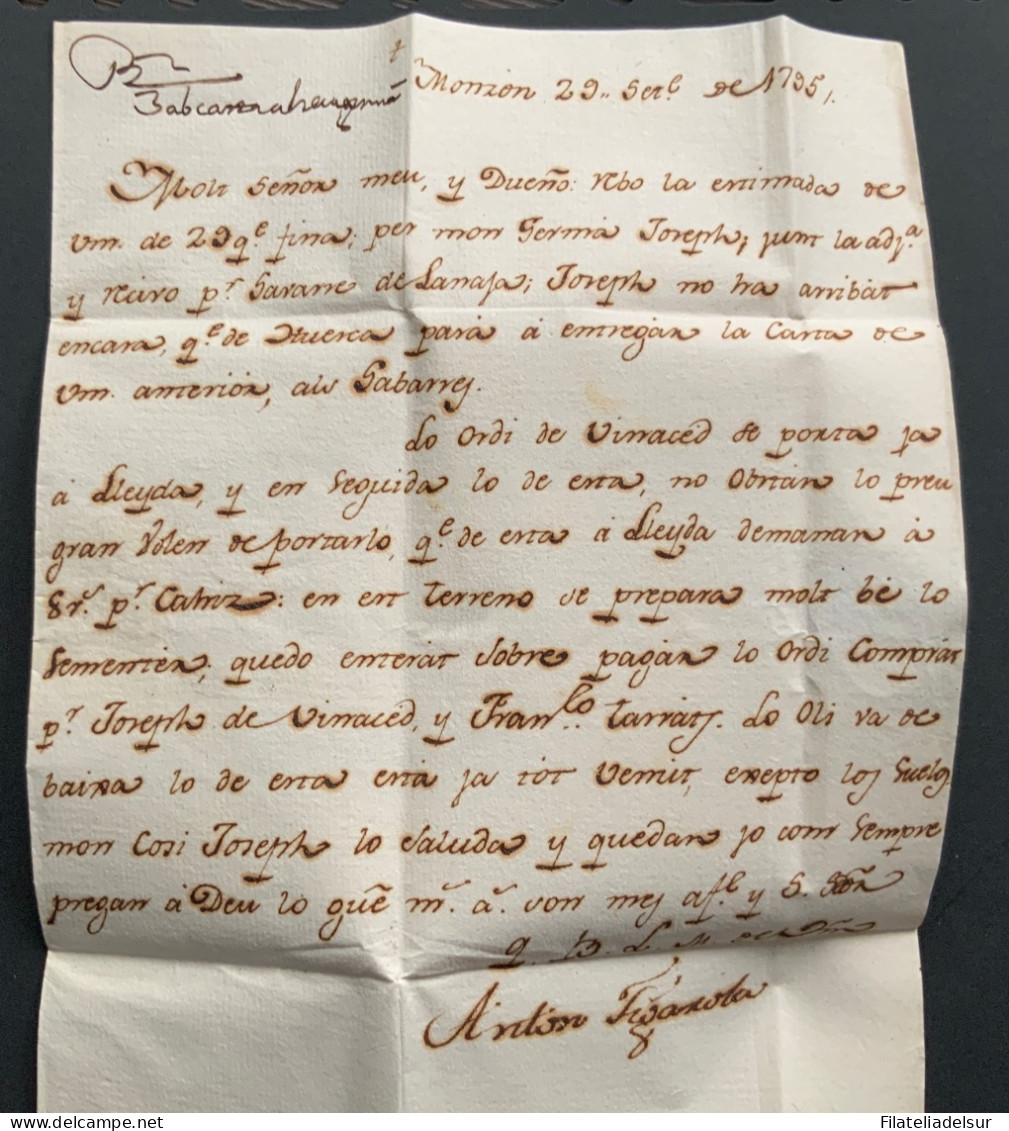 Monzon 29,, Setb. de 1795,.
Molt Señor meu, y Dueño: Rbo la estimada de
Vm. de 29 qe. fina; per mon Germá Joseph; junt la adja.
y reciro pr. de Lanaja; Joseph no ha arribat
encara, qe. de Huesca pará á entregar la Carta de
Vm. anterior, als Gabarres.
Lo Ordi de Vinaced se porta ja
á Lleyda, y en seguida lo de esta, no Obstan lo preu
gran Volen de portarlo, qe. de esta á Lleyda demanan á
8rs. pr. Cahiz: en est terreno se prepara molt bé lo
Sementer; quedo enterat Sobre pagar lo Ordi Comprat
pr. Joseph de Vinaced, y Franco. Tarrats. Lo Oli va de
baixa lo de esta está ja tót Venut, exepto los Suelos
mon Cosi Joseph lo Saluda y quedan jo com Sempre
pregan á Deu lo gue. ms. as. son mes aft. y S. Sor.
q. B. L. M. de Vm
Antón Figarola
Filateliadelsur